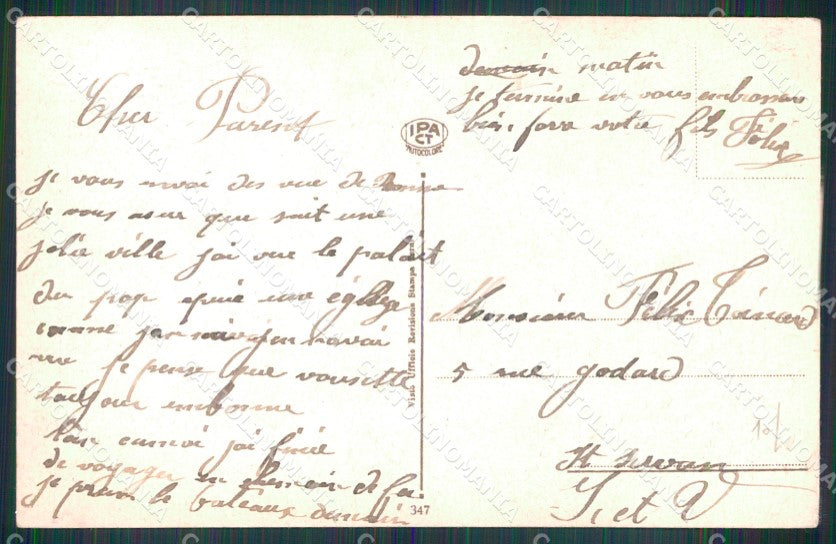 Cher Parent
je vous envoi des vue de Romme
je vous asur que sait une
jolie ville jai vue le palait
du pap epuie une églisse
comme jen navai
vue je pense que vousette
toujour enbonne
jai finie
de voyager en chemain de fer
je prem le bateaux demain
demain matin
je termine en vous embrassan
bien fore votre fils Félix
IPA
CT
AUTOCOLORE
Visto Ufficio Revisione Stampa
347
Monsieur Félix
5 rue godard
St servan
I, et V
CARTOLINOMANIA